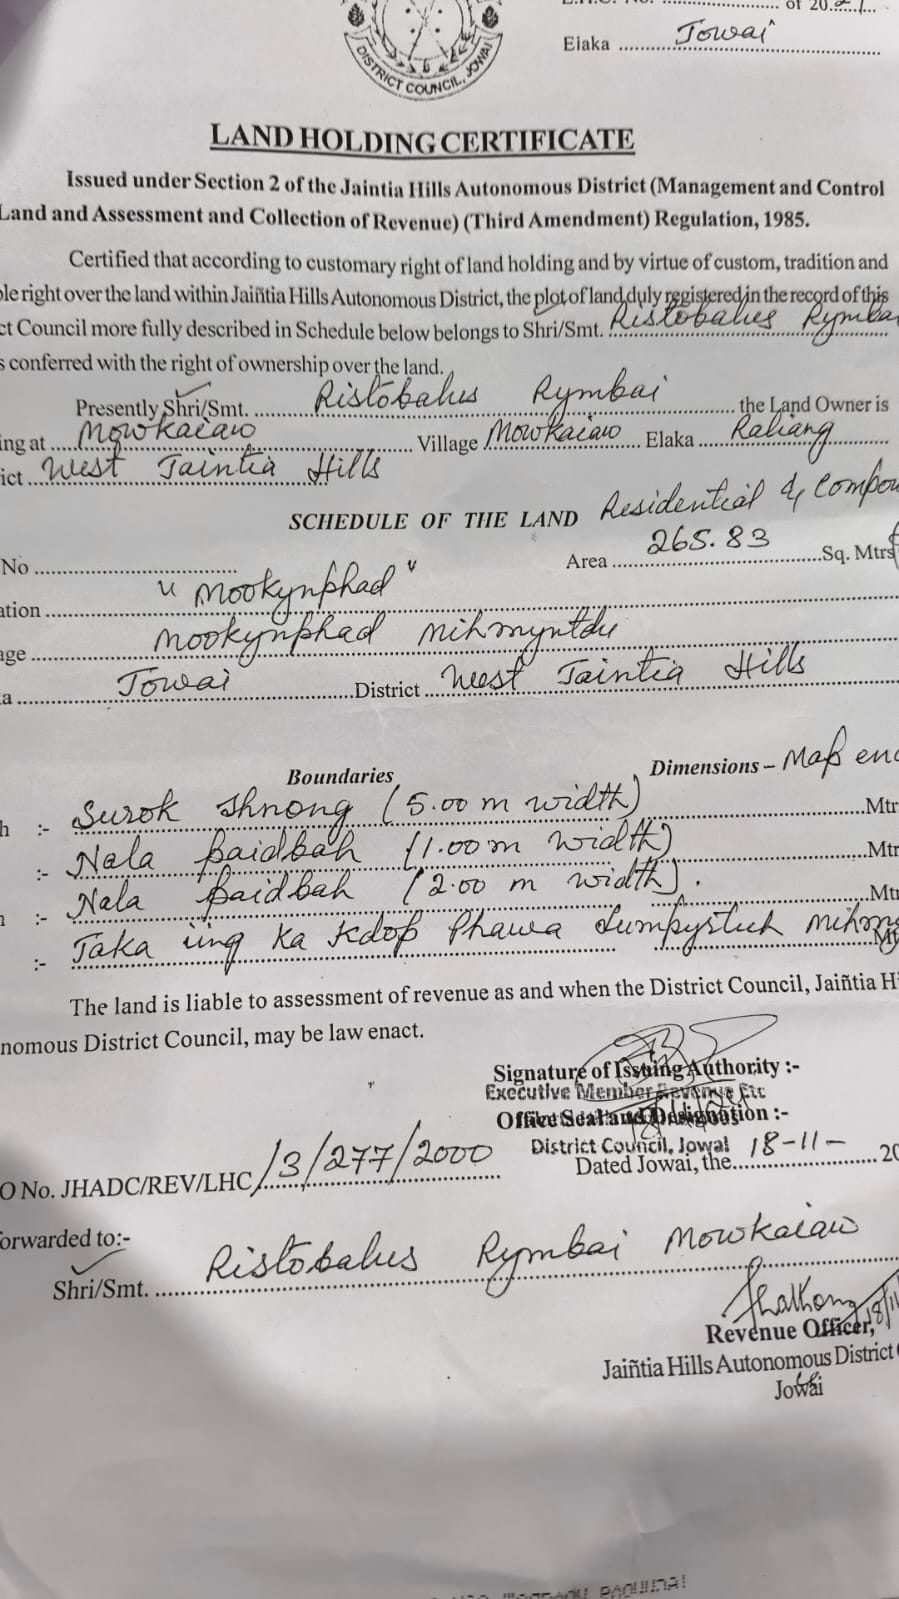 of 20
Elaka Jowai
DISTRICT COUNCIL, JOWAI
LAND HOLDING CERTIFICATE
Issued under Section 2 of the Jaintia Hills Autonomous District (Management and Control
Land and Assessment and Collection of Revenue) (Third Amendment) Regulation, 1985.
Certified that according to customary right of land holding and by virtue of custom, tradition and
right over the land within Jaiñtia Hills Autonomous District, the plot of land duly registered in the record of this
Council more fully described in Schedule below belongs to Shri/Smt. Ristobalus
conferred with the right of ownership over the land.
Presently Shri/Smt. Ristobalus Rymbai the Land Owner is
at Mowkaiaw Village Mowkaiaw Elaka Raliang
West Jaintia Hills
SCHEDULE OF THE LAND Residential &
No Area 265.83 Sq. Mtrs
"Mookynphad"
Mookynphad Mihmyntdu
Jowai District West Jaintia Hills
Boundaries Dimensions – Map
:- Surok Shnong (5.00 m width) Mtr
:- Nala Baidbah (1.00m width) Mtr
:- Nala Baidbah (2.00 m width). Mt
:- Jaka iing Ka Kdop Phawa
The land is liable to assessment of revenue as and when the District Council, Jaiñtia
District Council, may be law enact.
Signature of Issuing Authority :-
Executive Member Revenue Etc
Office Seal and Designation :-
District Council, Jowai
Dated Jowai, the 18-11- 20
No. JHADC/REV/LHC/3/277/2000
forwarded to:-
Shri/Smt. Ristobalus Rymbai Mowkaiaw
Revenue Officer,
Jaiñtia Hills Autonomous District
Jowai